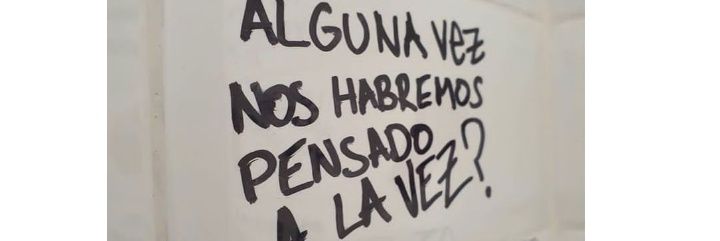 ALGUNA VEZ
NOS HABREMOS
PENSADO
A LA VEZ?